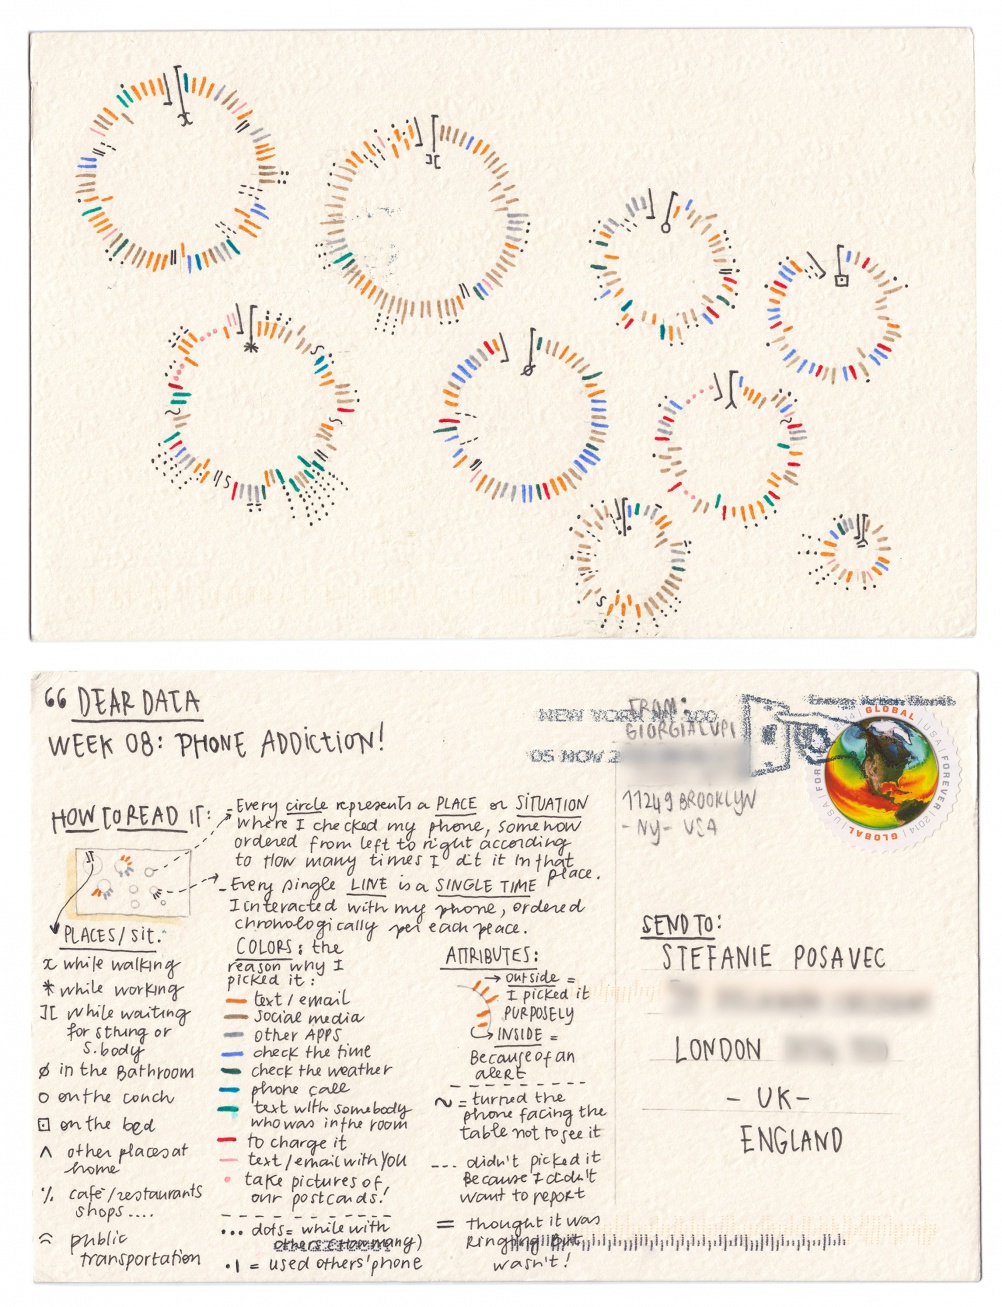 “ DEAR DATA
WEEK 08: PHONE ADDICTION!
HOW TO READ IT:
- Every circle represents a PLACE or SITUATION
where I checked my phone, somehow
ordered from left to right according
to How many times I did it in that
place.
- Every single LINE is a SINGLE TIME
I interacted with my phone, ordered
chronologically per each peace.
PLACES/ sit.
x while walking
* while working
][ while waiting
for sthing or
s.body
ø in the Bathroom
o on the couch
⊡ on the bed
^ other places at
home
% cafè/restaurants
shops....
public
transportation
COLORS: the
reason why I
picked it:
text / email
social media
other APPS
check the time
check the weather
phone call
text with somebody
who was in the room
to charge it
text/email with YOU
take pictures of
our postcards!
... dots = while with
others (How many)
•I = used others' phone
ATTRIBUTES:
→ outside =
I picked it
PURPOSELY
→ INSIDE =
Because of an
alert
~ = turned the
phone facing the
table not to see it
--- didn't picked it
Because I didn't
want to report
= thought it was
ringing But
wasn't!
FROM:
GIORGIA LUPI
11249 BROOKLYN
- NY - USA
NEW YORK NY 100
05 NOV 2
GLOBAL
USA
FOREVER
2014
GLOBAL
SEND TO:
STEFANIE POSAVEC
LONDON
- UK -
ENGLAND